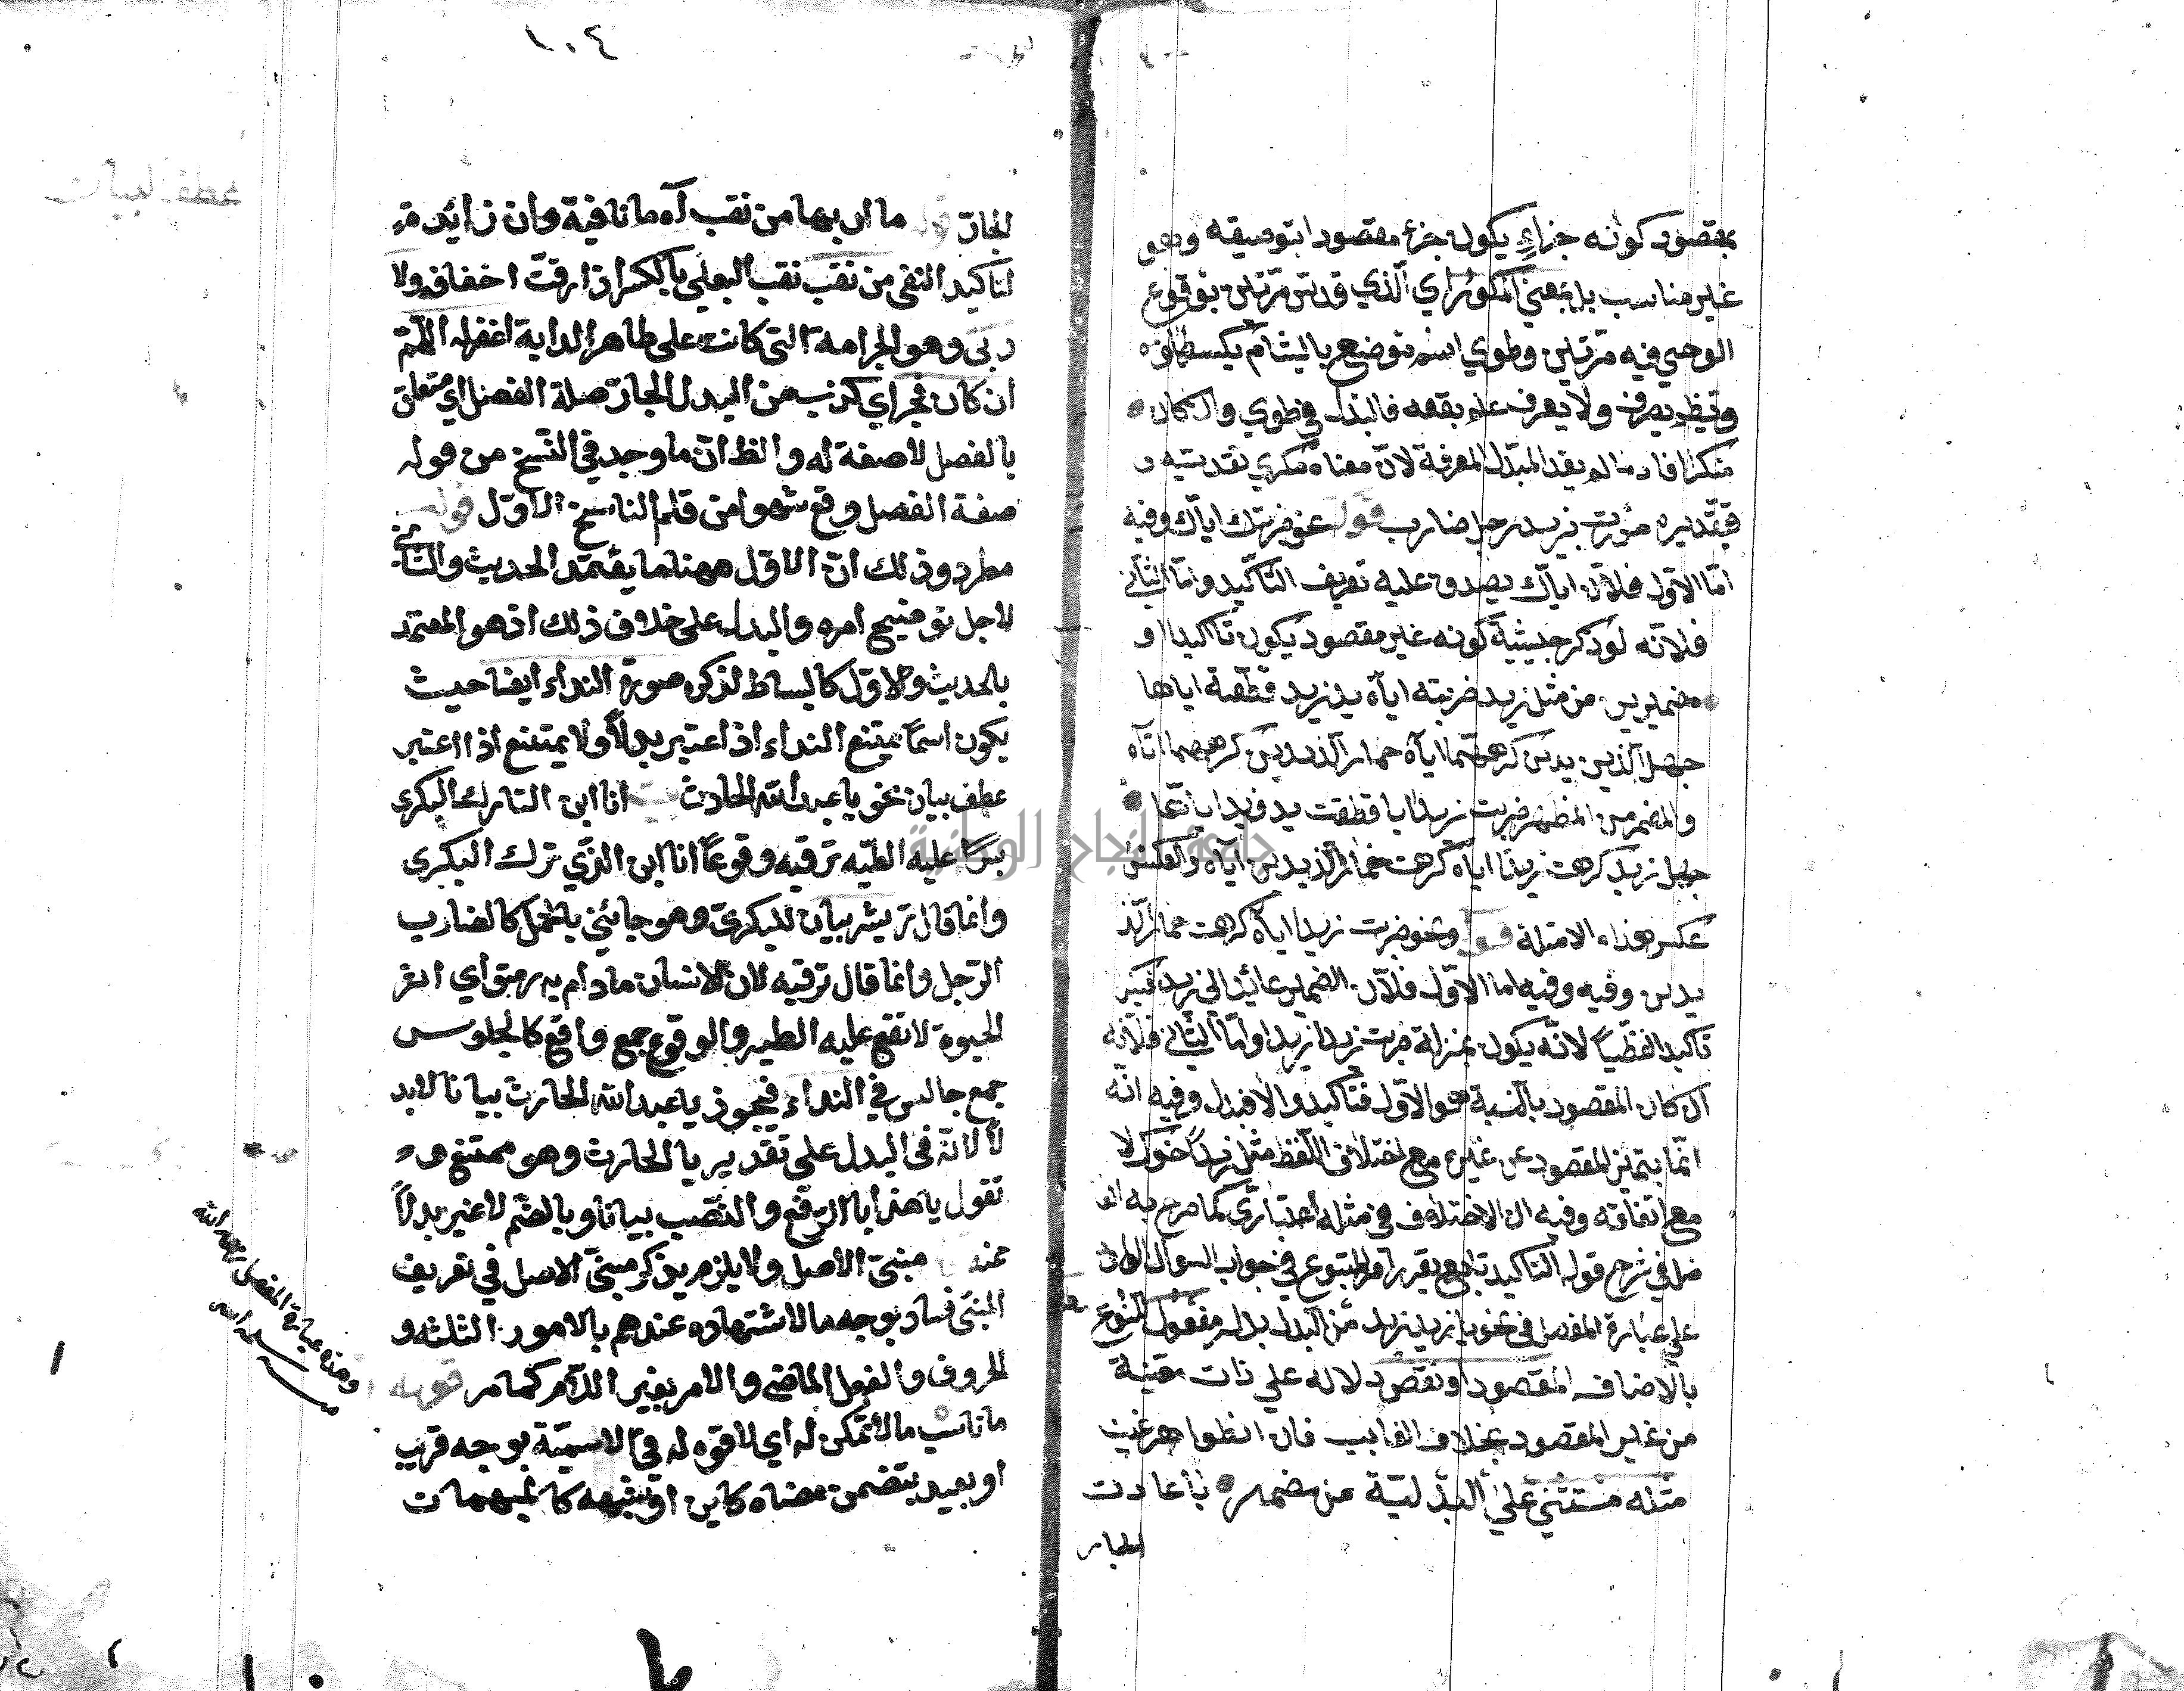 بمقصود كونه جزاء يكون جزء مقصودا بتوصيفه وهو
غير مناسب بل بمعنى المكرر اي الذي قدس مرتين بوقوع
الوحي فيه مرتين وطوي اسم توضع بالشام
ولا يعرف علم بقعه فالبدل في طوي وان كان
منكرا فادما لم يفد المبدل المعرفة لان معناه مكرر تقديسه و
فتقديره مررت بزيد رجل ضارب قوله نحو ضربتك اياك وفيه
اما الاول فلان اياك يصدق عليه تعريف التأكيد واما الثاني
فلانه لو ذكر حيثية كونه غير مقصود يكون تأكيدا و
مضميرين من مثل زيد ضربته اياه يد زيد قطعته اياها
جهل الزيدين كرهتهما اياه حمار الزيدين كرهتهما اياه
والمضمر من المظهر ضربت زيدا اياه قطعت يد زيد اياها
جهل زيد كرهت زيدا اياه كرهت حمار الزيدين اياه والعكس
عكس هذه الامثلة قوله ونحو ضربت زيدا اياه كرهت حمار الز
يدين وفيه وفيه اما الاول فلان الضمير عائد الى زيد فيكون
تاكيدا لفظيا لانه يكون بمنزلة ضربت زيدا زيدا واما الثاني فلانه
ان كان المقصود بالنسبة هو الاول فتأكيد والا فبدل وفيه انه
انما يتميز المقصود عن غيره مع اختلاف اللفظ مثل زيد اخوك لا
مع اتفاقه وفيه ان الاختلاف في مثله اعتباري كما صرح به الفا
ضل في شرح قوله التاكيد تابع يقرر امر المتبوع في جواب السوال
على عبارة المفصل في نحو يا زيد زيد من البدل بدل
بالاضافه المقصود او نقص دلاله على ذات معينة
من غير المقصود بخلاف الغايب فان
مثله مستثنى على البدلية عن مضمر يا عادت
الجار
١٠٤
الجار قوله ما ان بها من نقب آه ما نافية وان زائدة
لتاكيد النفي من نقب نقب البعلي بالكسر اذا رقت اخفافه ولا
دبر وهو الجراحة التي كانت على ظاهر الدابة اغفر له اللهم
ان كان فجر اي كذب من البدل الجار صلة الفصل اي متعلق
بالفصل لا صفة له والظ ان ما وجد في النسخ من قوله
صفة الفصل وقع سهوا من قلم الناسخ الاول قوله
مطرد وذلك ان الاول ههنا ما يعتمد الحديث والثاني
لاجل توضيح امره والبدل على خلاف ذلك اذ هو المعتمد
بالحديث والاول كالبساط لذكره صورة النداء ايضا حيث
يكون اسما يمتنع النداء اذا اعتبر بدلا ولا يمتنع اذا اعتبر
عطف بيان نحو يا عبد الله الحارث انا ابن التارك البكري
بشر عليه الطير ترقبه وقوعا انا ابن الذي ترك البكري
وانما قال بشر بيان للبكري وهو جائني كالضارب
الرجل وانما قال ترقبه لان الانسان مادام به رمق اي اثر
الحيوة لا تقع عليه الطير والوقوع جمع واقع كالجلوس
جمع جالس في النداء فيجوز يا عبد الله الحارث بيانا لا بد
لا لانه في البدل على تقدير يا الحارث وهو ممتنع و
تقول يا هذا بالرفع والنصب بيانا وبالضم لا غير بدلا
عنه مبني الاصل ولا يلزم من ذكر مبني الاصل في تعريف
المبني فساد بوجه ما لاشتهاده عندهم بالامور الثلثه و
الحروف والفعل الماضي والامر بغير اللام كما مر قوله
ما ناسب ما لا تمكن له اي لا قوة له في الاسمية بوجه قريب
او بعيد بتضمن معناه كاين او شبهه كالمبهمات
وهذه عبارة المفصل رحمه الله
جامعة النجاح الوطنية